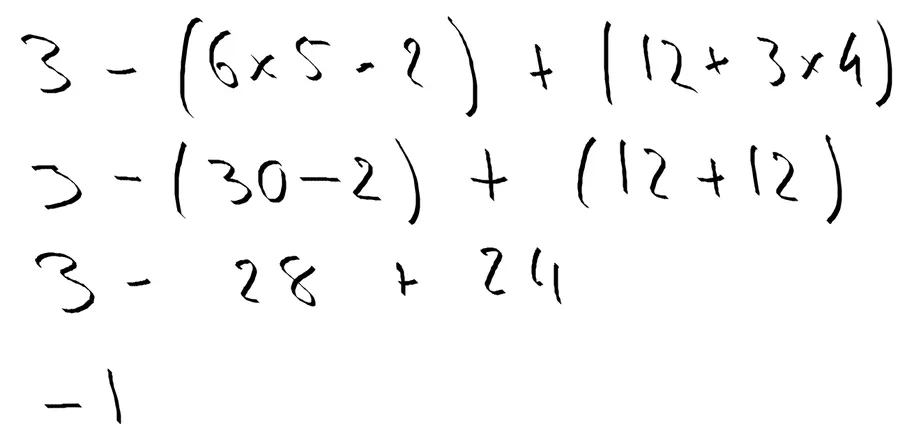 3 - (6x5 - 2) + (12 + 3x4)
3 - (30 - 2) + (12 + 12)
3 - 28 + 24
-1